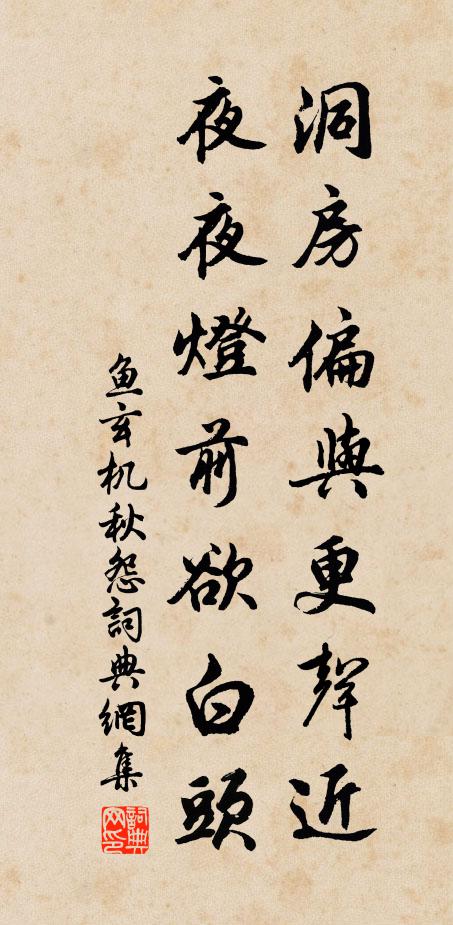 洞房偏與更聲近
夜夜燈前欲白頭
鱼玄机秋怨詞典網集
詞典网印